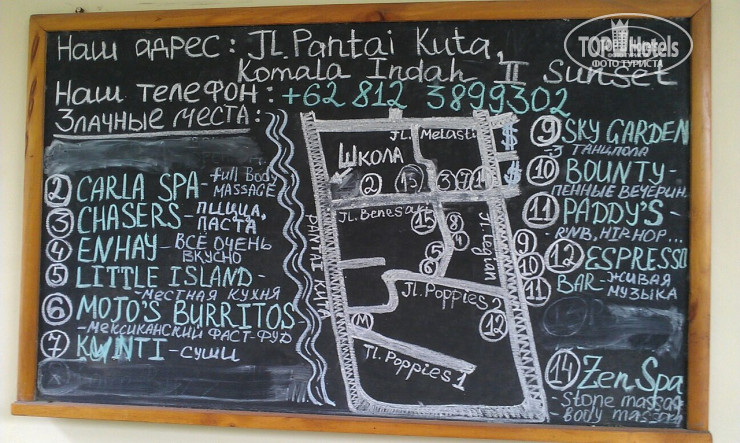 Наш адрес: JL.Pantai Kuta,
Komala Indah II Sunset
Наш телефон: +62 812 3899302
Злачные места:
② CARLA SPA- full Body
MASSAGE
③ CHASERS- ПЦЦЦА,
ПАСТА
④ ENHAY- ВСЁ ОЧЕНЬ
ВКУСНО
⑤ LITTLE ISLAND-
-МЕСТНАЯ КУХНЯ
⑥ MOJO'S BURRITOS-
-МЕКСИКАНСКИЙ ФАСТ-ФУД
⑦ KUNTI-СУШИ
PANTAI KUTA
JL. Melasti
$
$
ШКОЛА
② ⑬ ③ ⑦ ①
JL.Benesari
⑮ ⑧
④
⑤
⑥
JL.Legian
⑨
⑩
⑪
JL.Poppies 2
Ⓜ
⑫
JL.Poppies 1
⑨ SKY GARDEN
-3 ТАНЦПОЛА
⑩ BOUNTY-
ПЕННЫЕ ВЕЧЕРИН
⑪ PADDY'S-
R'NB, HIP-HOP...
⑫ ESPRESSO
BAR-ЖИВАЯ
МУЗЫКА
⑭ Zen Spa
-Stone massag
-Body massag
TOP Hotels
ФОТО ТУРИСТА